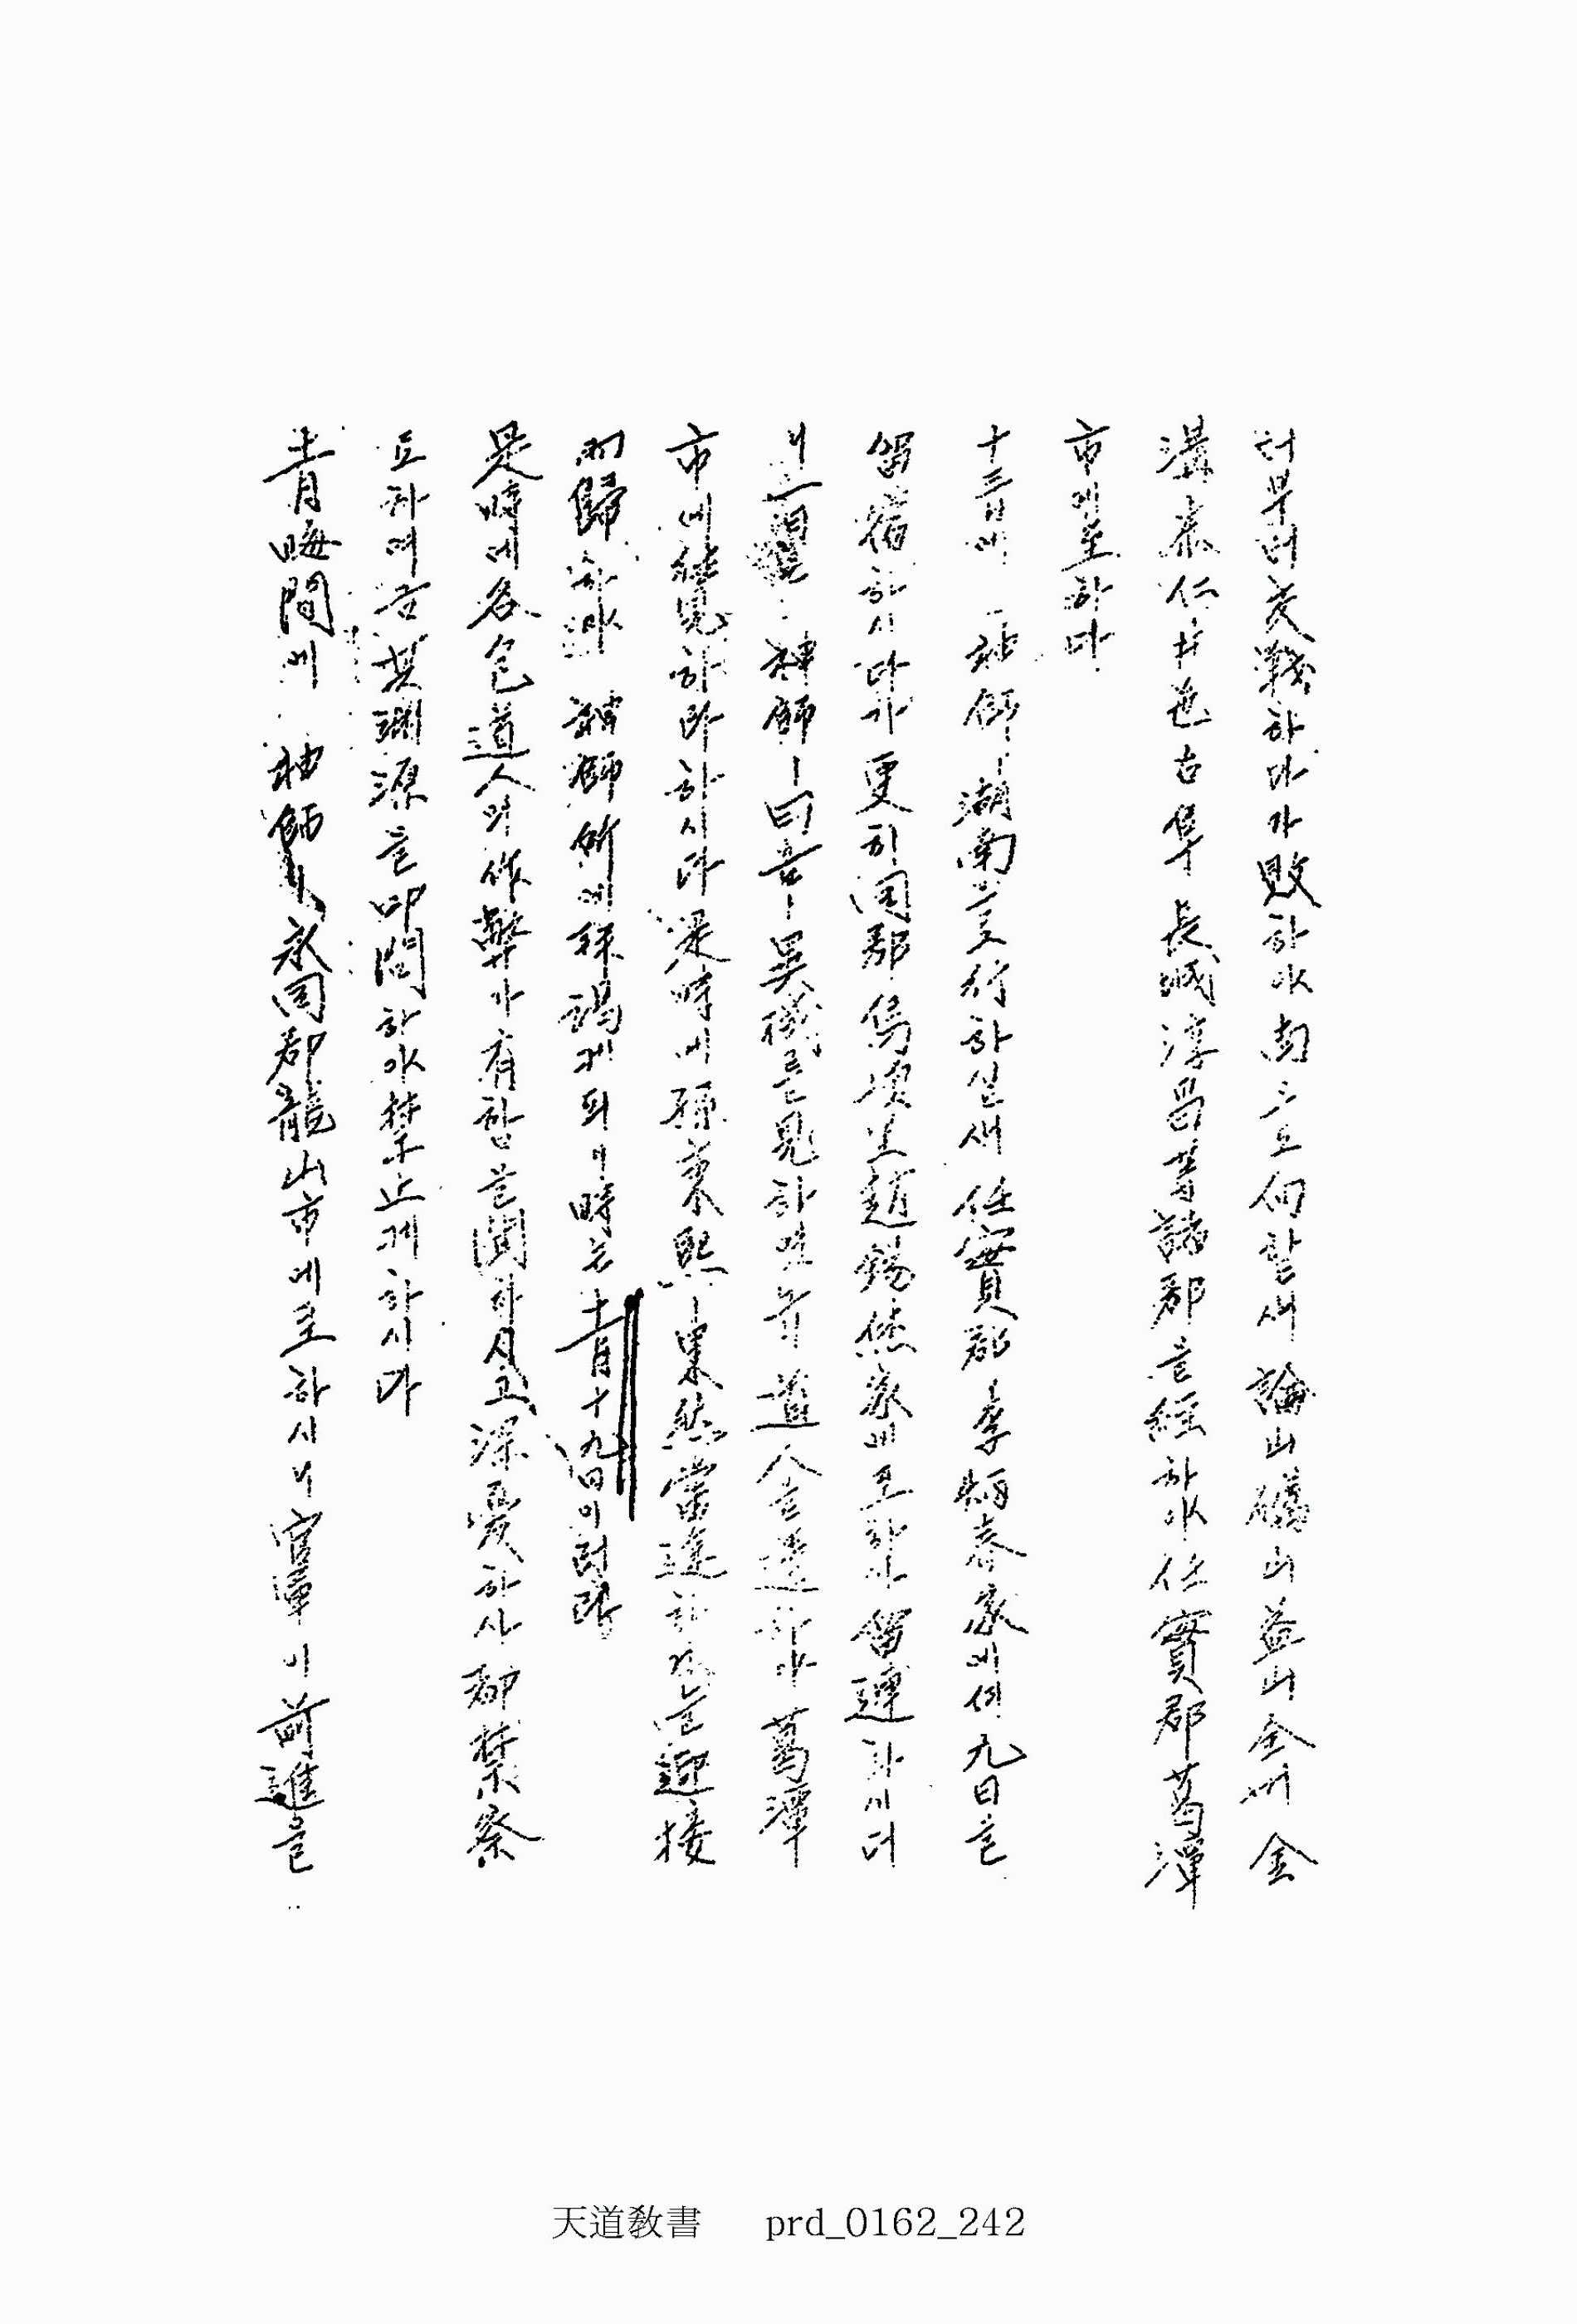 더부러交戰하다가敗하야南으로向할새 論山礪山益山全州 金
溝泰仁井邑古阜 長城淳昌等諸郡을經하야任實郡葛潭
市에至하다
十三日에 神師ㅣ湖南并行하실새 任實郡 李炳春家에서九日을
留宿하시다가更히同郡 鳥項里趙錫烋家에至하야留連하시더
니一日은 神師ㅣ曰吾ㅣ異機를見하엿노니 道人을送하야葛潭
市에候見하라하시다是時에孫秉熙ㅣ果然當進하거늘迎接
而歸하야 神師所에拜謁케되니時는十一月十九日이러라
是時에各包道人의作弊가有함을聞하시고深憂하사 都禁察
로하여금其淵源을叩問하야禁止케하시다
十二月晦間에 神師ㅣ永同郡龍山市에至하시니官軍이前進을
天道敎書 prd_0162_242